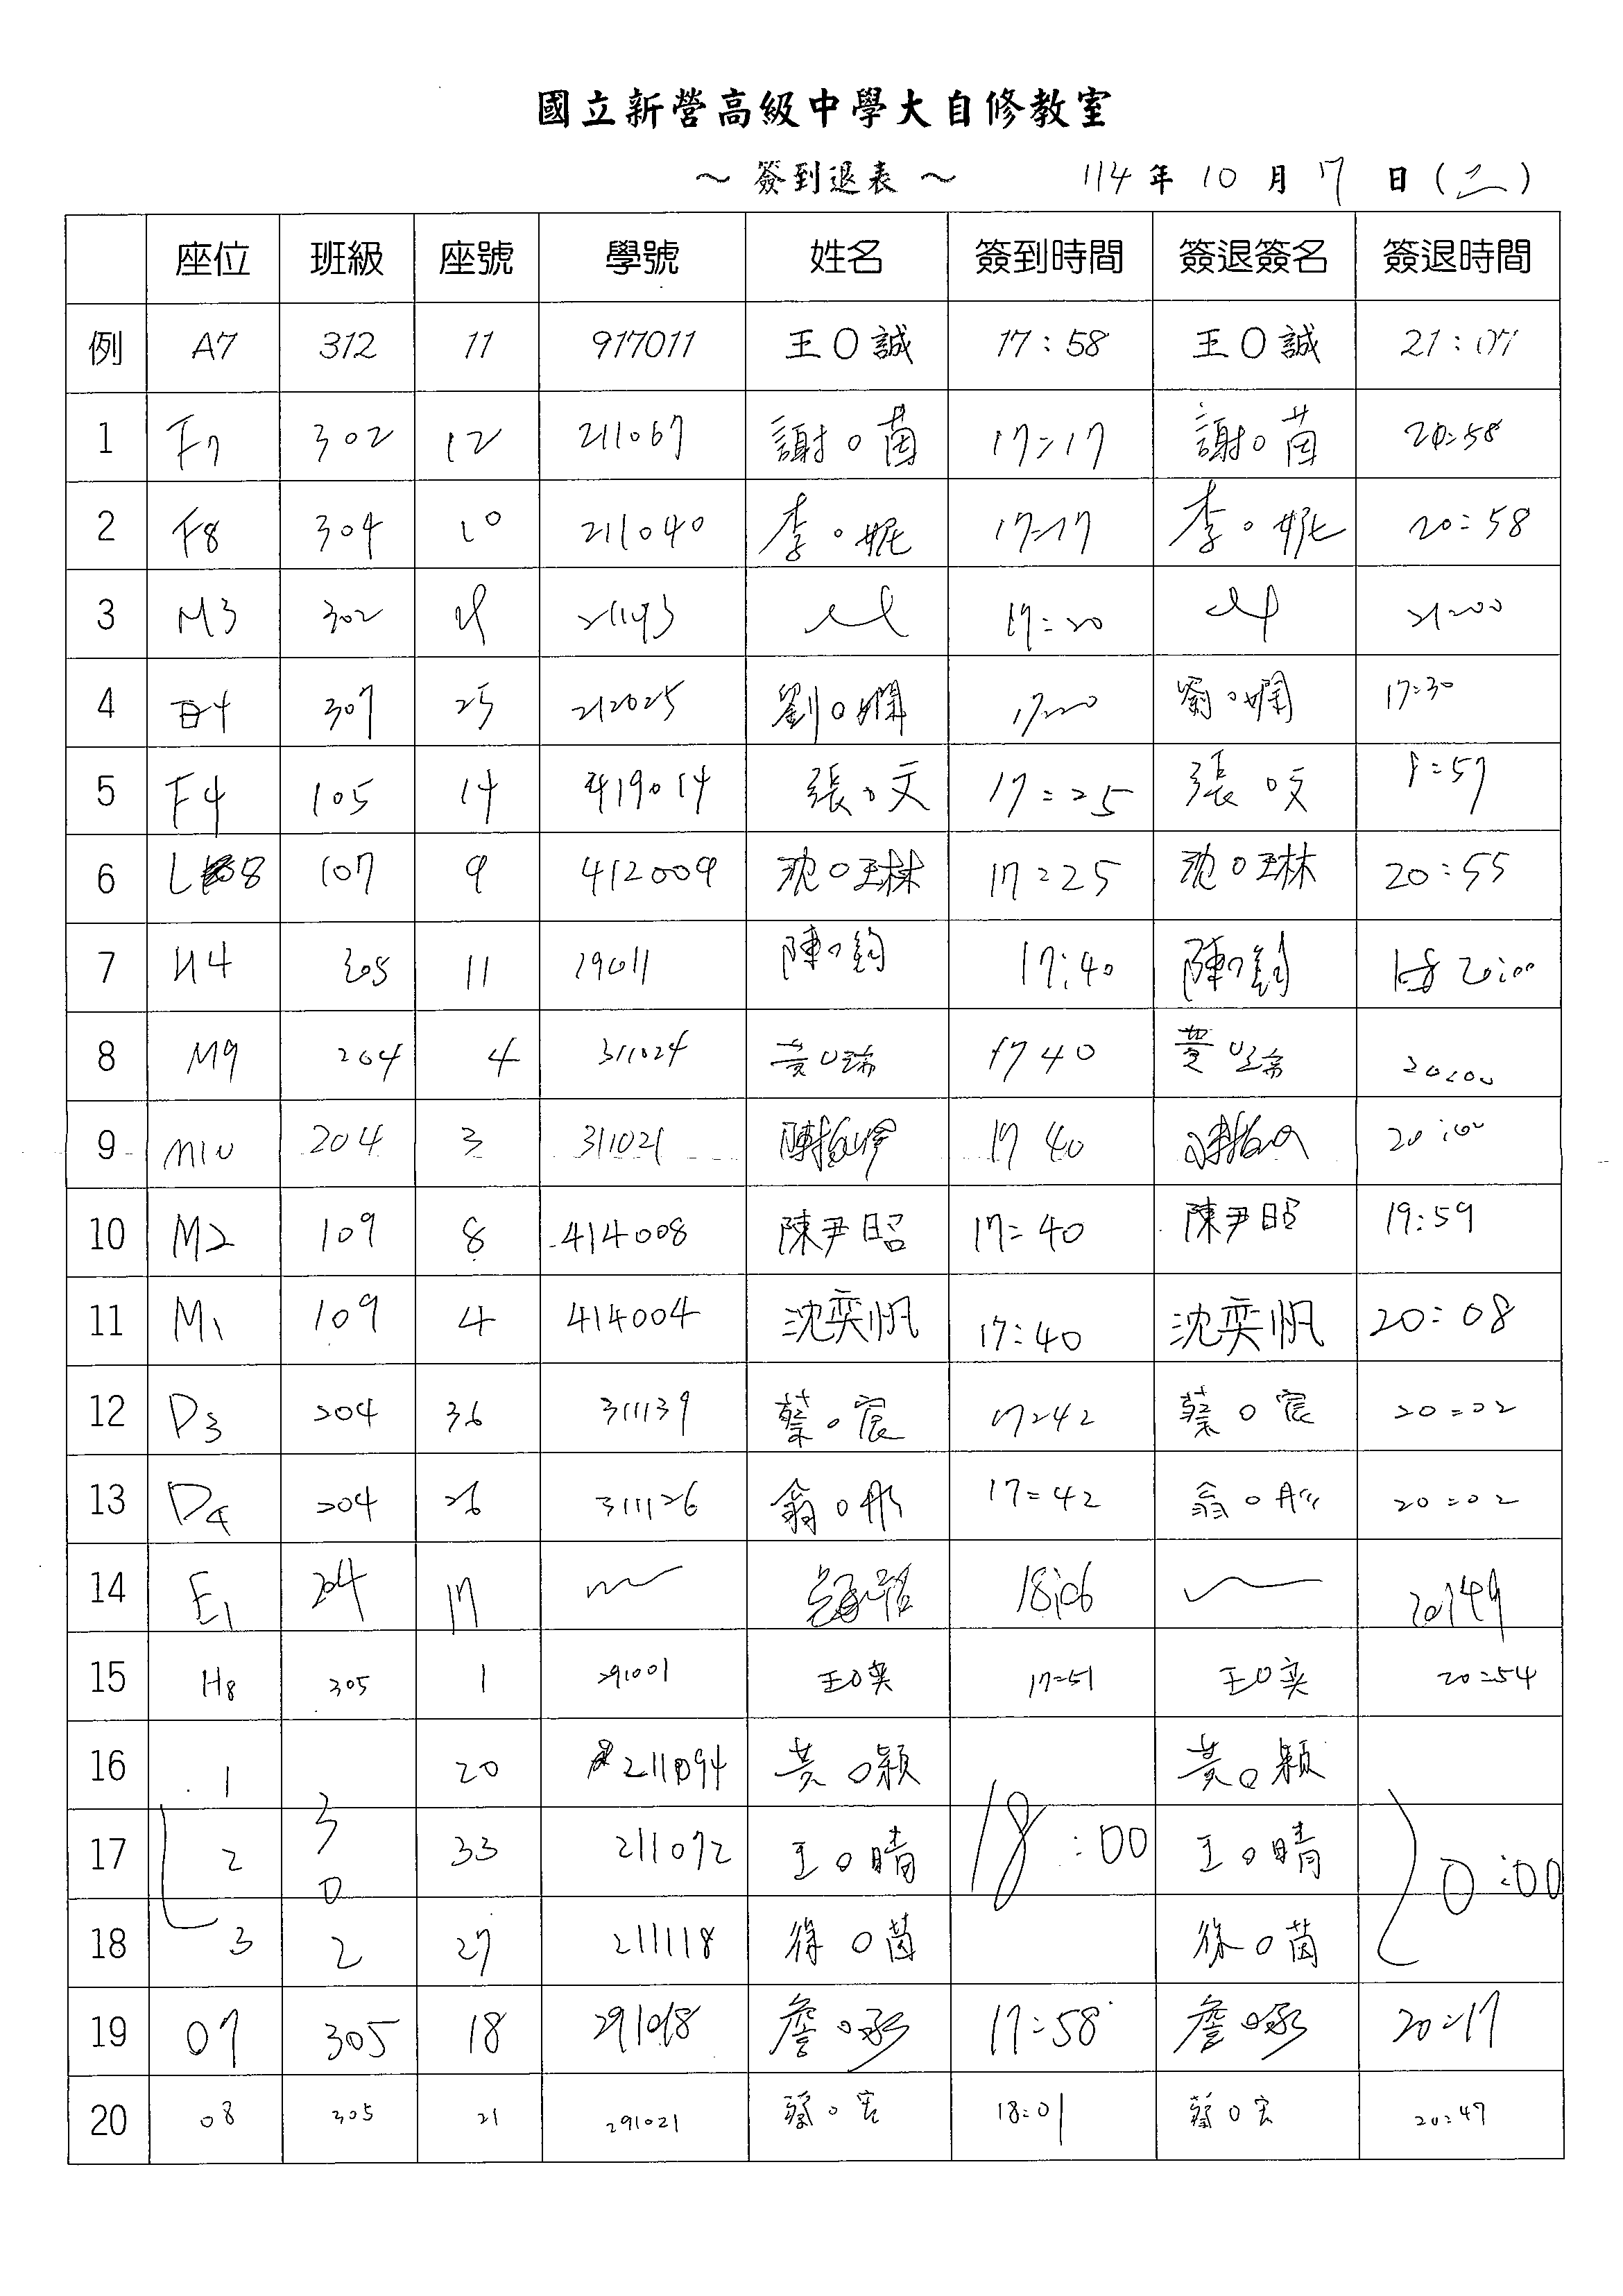 國立新營高級中學大自修教室
～ 簽到退表 ～ 114 年 10 月 7 日 (二)
座位 班級 座號 學號 姓名 簽到時間 簽退簽名 簽退時間
例 A7 312 11 917011 王〇誠 17:58 王〇誠 21:07
1 F7 302 12 211067 謝〇茵 17:17 謝〇茵 20:58
2 F8 304 10 211040 李〇妮 17:17 李〇妮 20:58
3 M3 302 17:20 21:00
4 307 25 212025 劉〇嫻 17:20 劉〇嫻 17:30
5 F4 105 14 419014 張〇文 17:25 張〇文
6 L8 107 9 412009 沈〇琳 17:25 沈〇琳 20:55
7 H4 305 11 29011 陳〇鈞 17:40 陳〇鈞 20:00
8 M9 204 4 311024 黃〇 17 40 黃〇 20:00
9 M10 204 3 311021 陳 17 40 20:00
10 M2 109 8 414008 陳尹昭 17:40 陳尹昭 19:59
11 M1 109 4 414004 沈奕帆 17:40 沈奕帆 20:08
12 D3 204 36 311139 蔡〇宸 17:42 蔡〇宸 20:02
13 D4 204 26 311126 翁〇彤 17:42 翁〇彤 20:02
14 E1 204 17 18:06 20:49
15 H8 305 1 291001 王〇奕 17:51 王〇奕 20:54
16 1 20 211094 黃〇穎 黃〇穎
17 L 2 302 33 211072 王〇晴 18:00 王〇晴 20:00
18 3 27 211118 徐〇茵 徐〇茵
19 O7 305 18 291018 詹〇承 17:58 詹〇承 20:17
20 O8 305 21 291021 蔡〇宏 18:01 蔡〇宏 20:47